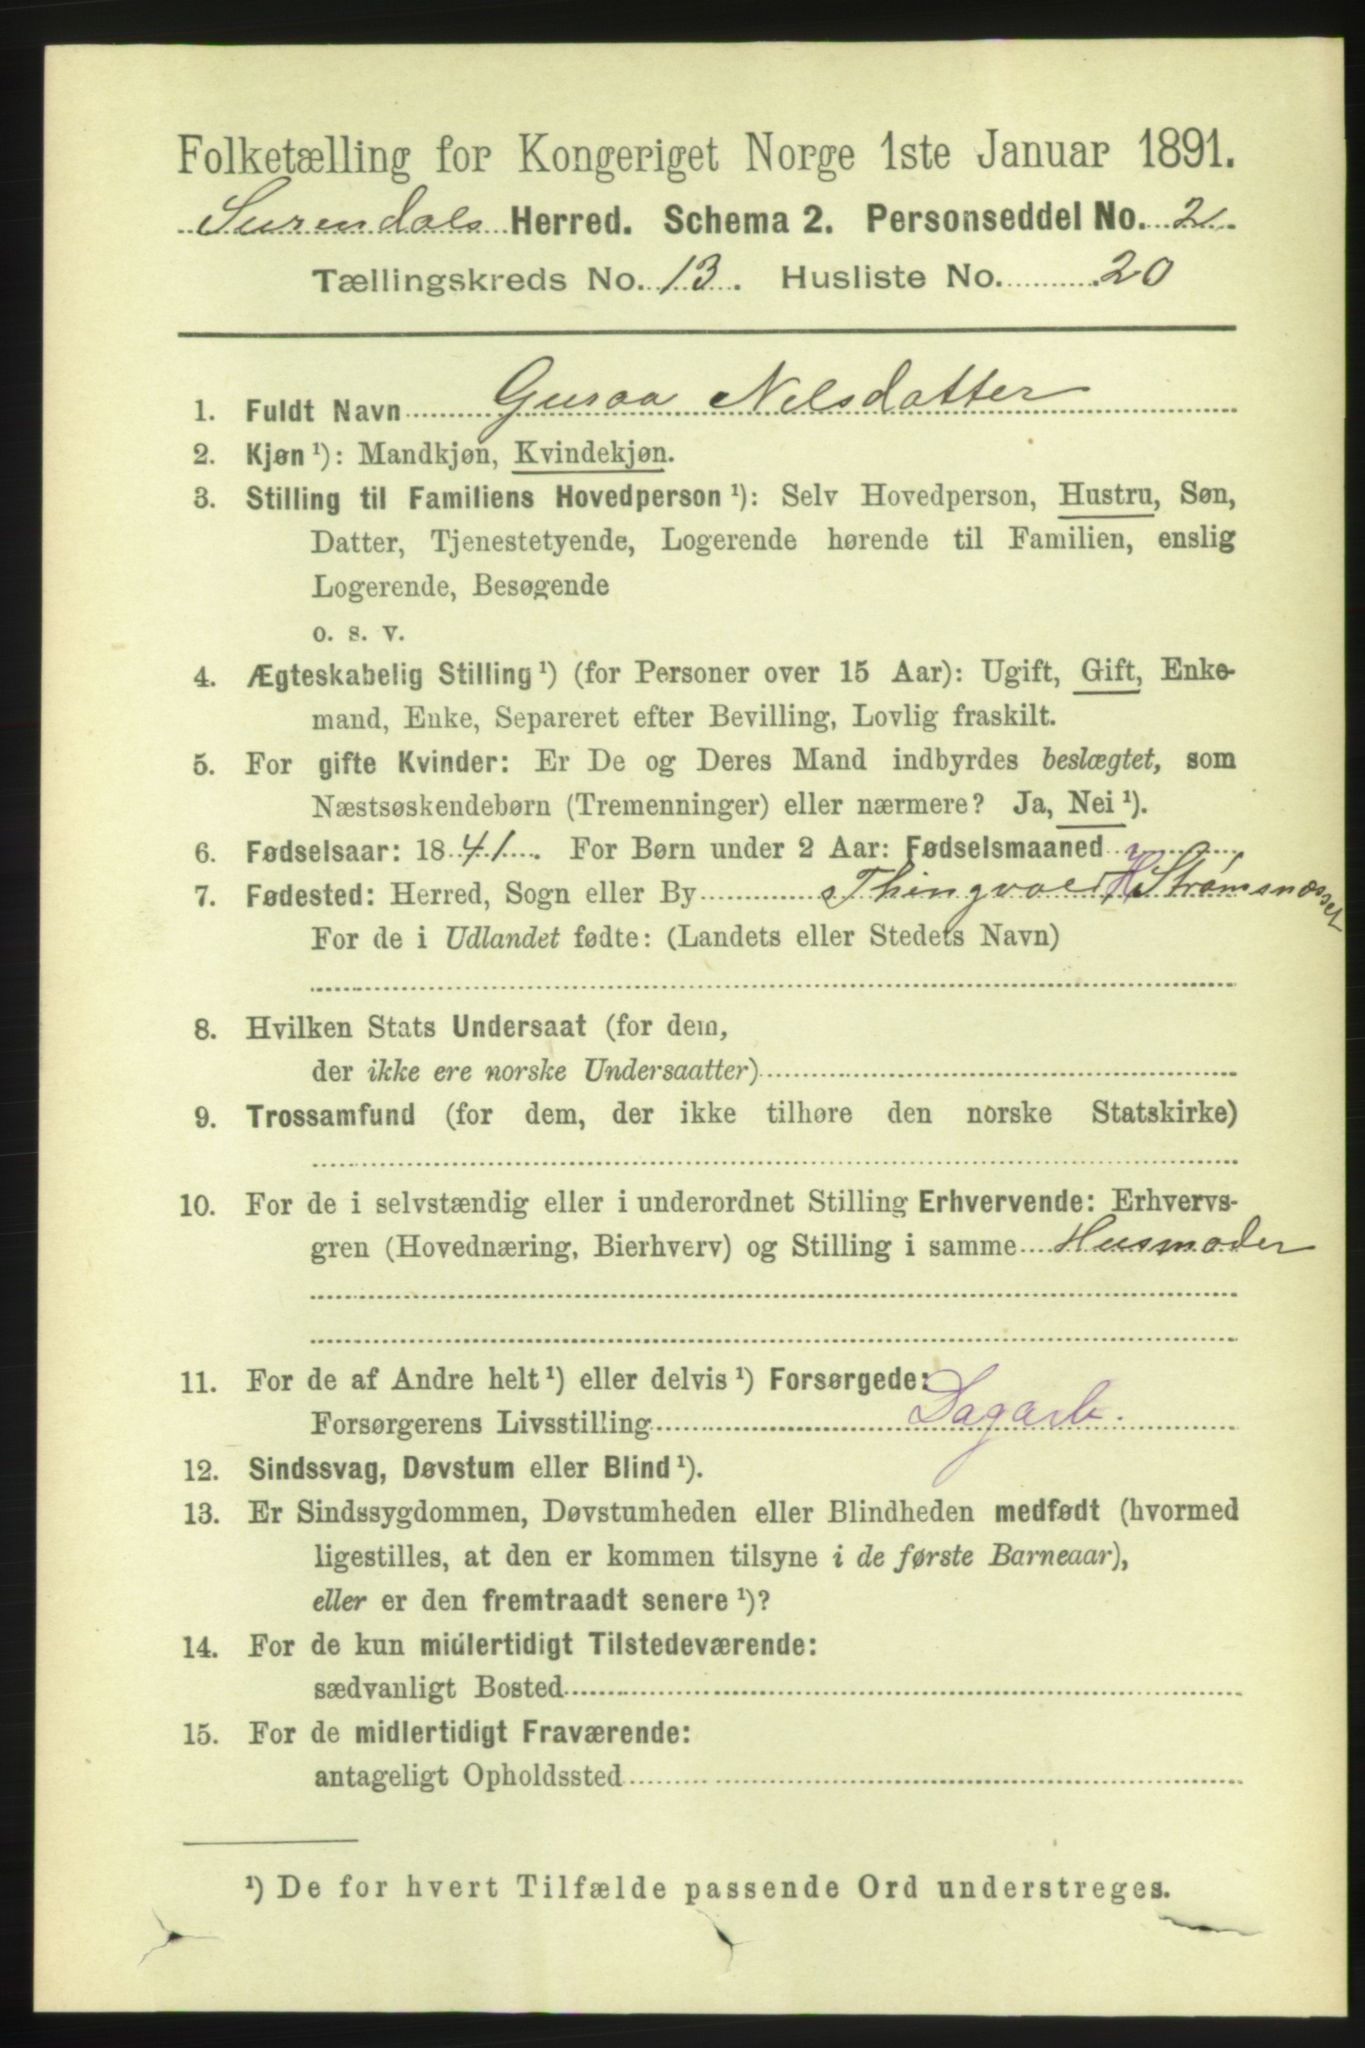 Folketælling for Kongeriget Norge 1ste Januar 1891.
Surendals Herred. Schema 2. Personseddel No. 2.
Tællingskreds No. 13. Husliste No. 20
1. Fuldt Navn Guroa Nilsdatter
2. Kjøn ¹): Mandkjøn, Kvindekjøn.
3. Stilling til Familiens Hovedperson ¹): Selv Hovedperson, Hustru, Søn,
Datter, Tjenestetyende, Logerende hørende til Familien, enslig
Logerende, Besøgende
o. s. v.
4. Ægteskabelig Stilling ¹) (for Personer over 15 Aar): Ugift, Gift, Enke-
mand, Enke, Separeret efter Bevilling, Lovlig fraskilt.
5. For gifte Kvinder: Er De og Deres Mand indbyrdes beslægtet, som
Næstsøskendebørn (Tremenninger) eller nærmere? Ja, Nei ¹).
6. Fødselsaar: 1841. For Børn under 2 Aar: Fødselsmaaned
7. Fødested: Herred, Sogn eller By Thingvold H Strømsnæsset
For de i Udlandet fødte: (Landets eller Stedets Navn)
8. Hvilken Stats Undersaat (for dem,
der ikke ere norske Undersaatter)
9. Trossamfund (for dem, der ikke tilhøre den norske Statskirke)
10. For de i selvstændig eller i underordnet Stilling Erhvervende: Erhvervs-
gren (Hovednæring, Bierhverv) og Stilling i samme Husmoder
11. For de af Andre helt ¹) eller delvis ¹) Forsørgede:
Forsørgerens Livsstilling Dagarb.
12. Sindssvag, Døvstum eller Blind ¹).
13. Er Sindssygdommen, Døvstumheden eller Blindheden medfødt (hvormed
ligestilles, at den er kommen tilsyne i de første Barneaar),
eller er den fremtraadt senere ¹)?
14. For de kun midlertidigt Tilstedeværende:
sædvanligt Bosted
15. For de midlertidigt Fraværende:
antageligt Opholdssted
¹) De for hvert Tilfælde passende Ord understreges.